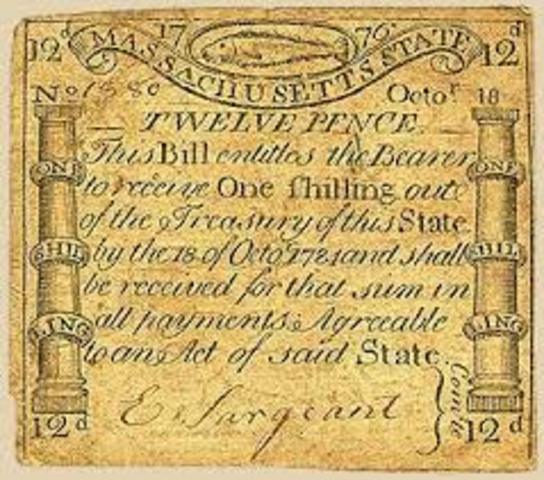 17 76
12d MASSACHUSETTS STATE 12d
No 1580 Octor 18
TWELVE PENCE
This Bill entitles the Bearer
to receive One ſhilling out
of the Treasury of this State
by the 18 of Octor 1781 and shall
be received for that sum in
all payments Agreeable
to an Act of said State.
ONE
SHIL
LING
ONE
SHIL
LING
E. Sargeant
Comte
12d 12d